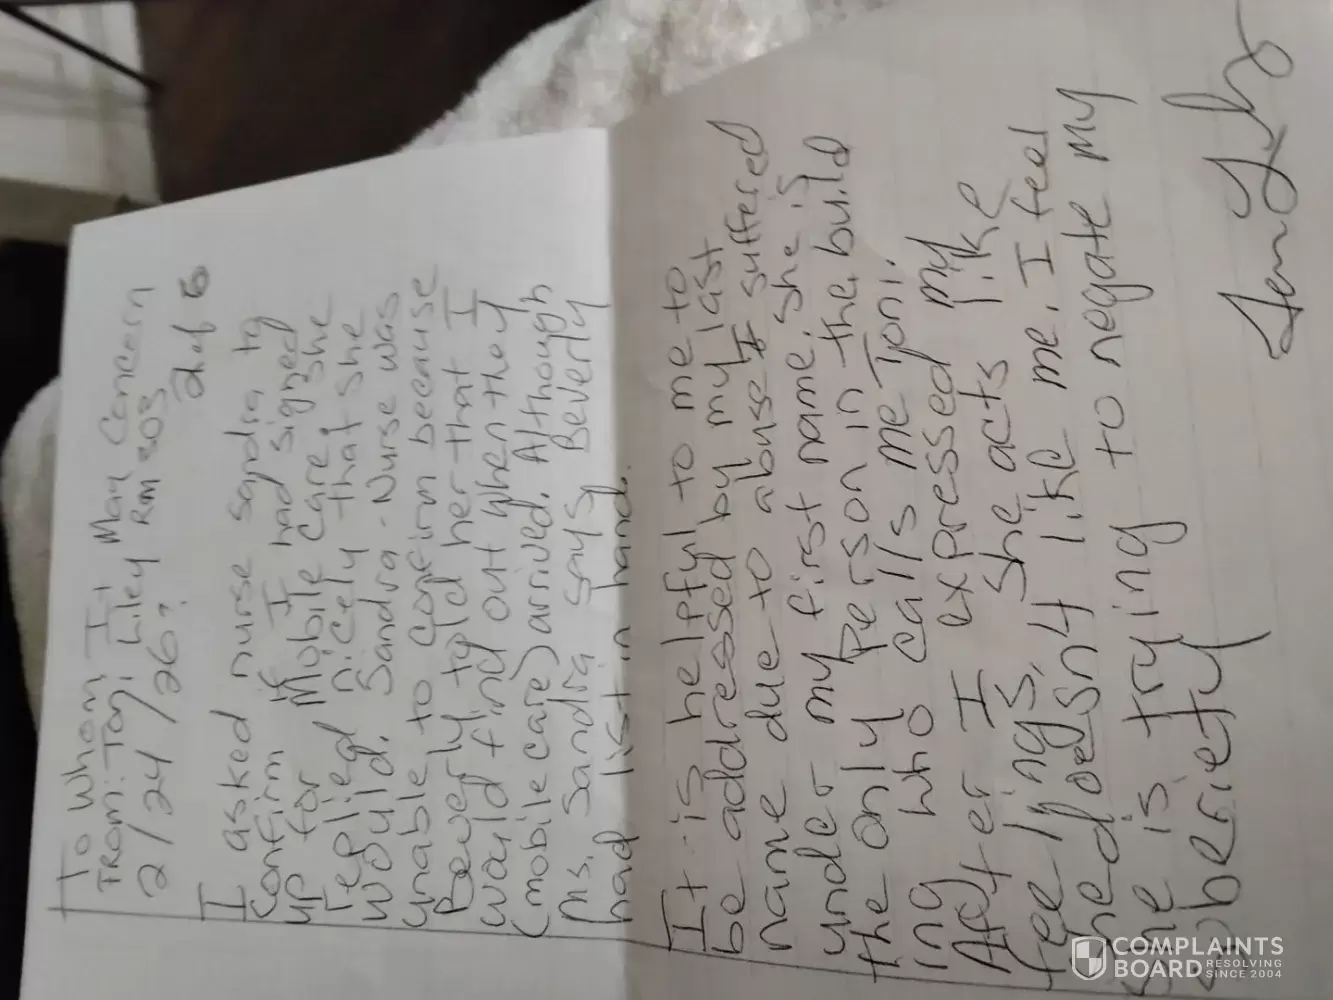 To Whom It May Concern
From: Toni Liley Rm 303
2/24/26? 2 of 5
I asked nurse sandra to
confirm if I had signed
up for Mobile Care, she
replied nicely that she
would. Sandra. Nurse was
unable to confirm because
Beverly told her that I
would find out when they
(mobile care) arrived. Although
Ms. Sandra says Beverly
had list in hand.
It is helpful to me to
be addressed by my last
name due to abuse I suffered
under my first name. she is
the only person in the build
ing who calls me Toni.
After I expressed my
feelings, she acts like
she doesn't like me. I feel
she is trying to negate my
sobriety
COMPLAINTS
BOARD RESOLVING
SINCE 2004